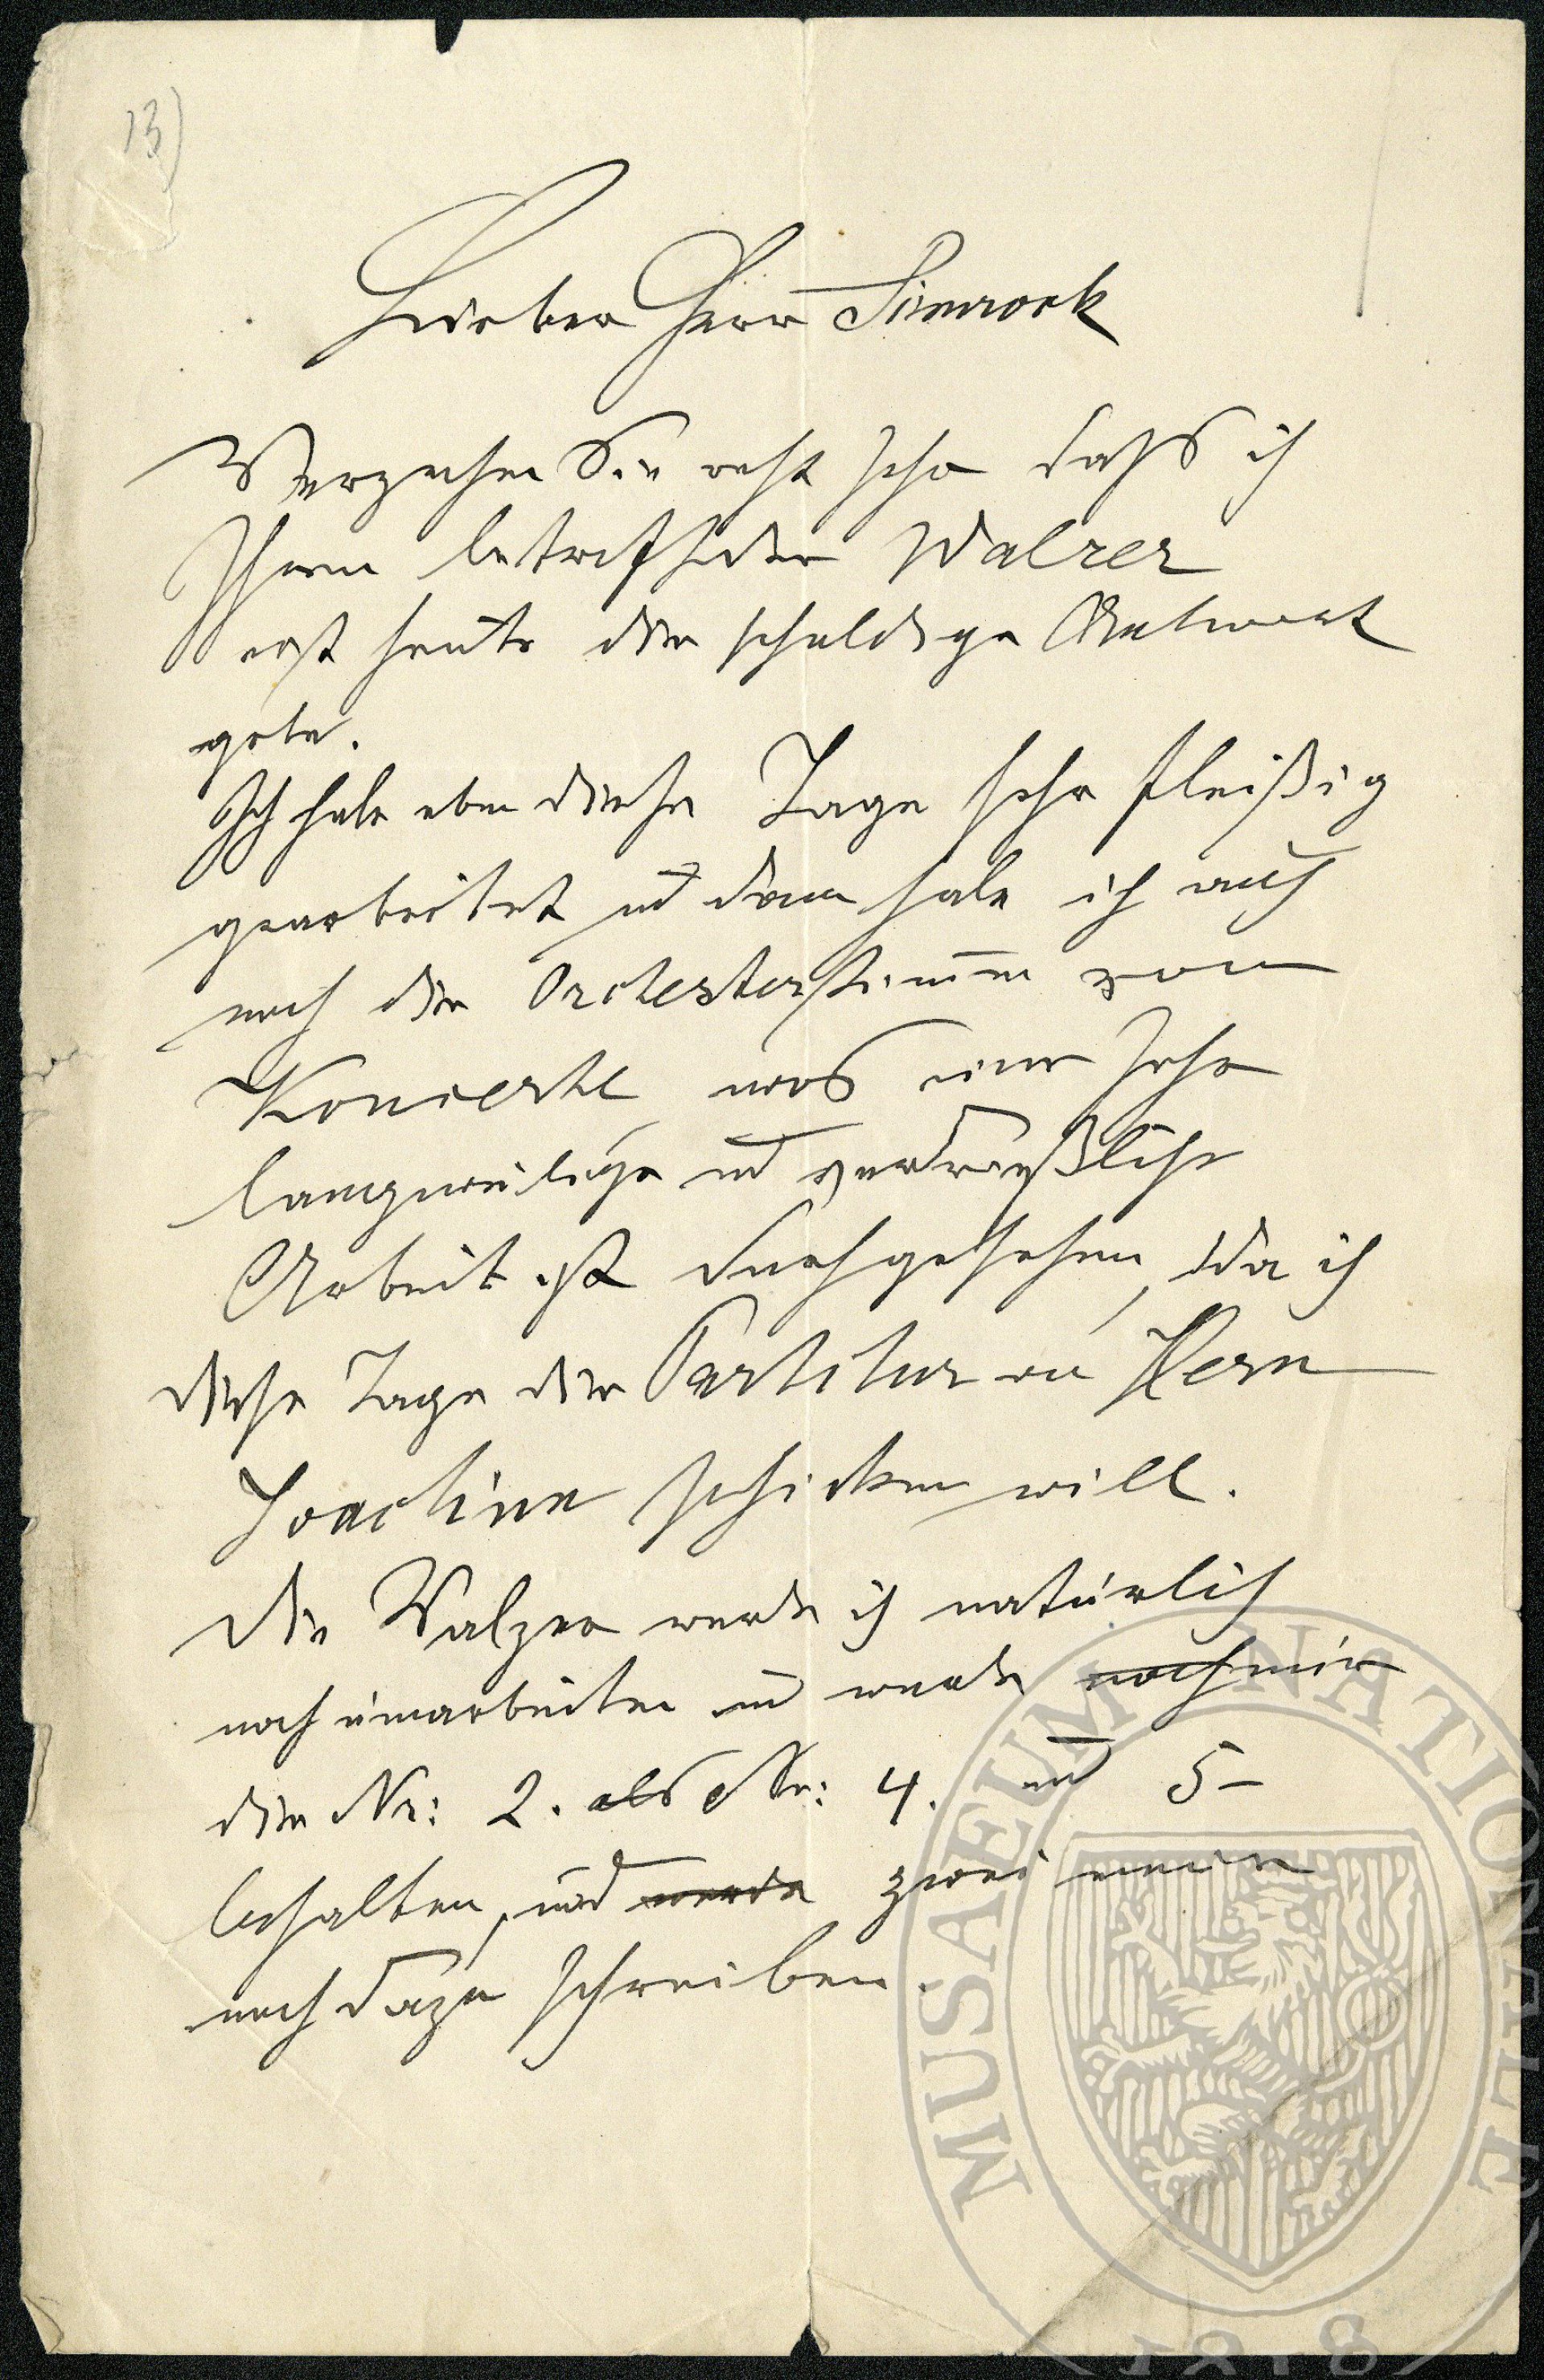 13)
Lieber Herr Simrock
Verzeihen Sie recht sehr daß ich
Ihnen betreffs der Walzer
erst heute die schuldige Antwort
gebe.
Ich habe eben diese Tage sehr fleißig
gearbeitet und dann habe ich auch
noch die Orchesterstimmen vom
Koncerte was eine sehr
langweilige und verdrießliche
Arbeit ist durchgesehen, da ich
diese Tage die Partitur an Hern
Joachim schicken will.
Die Walzer werde ich natürlich
noch umarbeiten und werde noch nur
die Nr: 2. als Nr: 4. und 5
behalten, und werde zwei neue
noch dazu schreiben.
MUSAEUM NATIONALE
1818